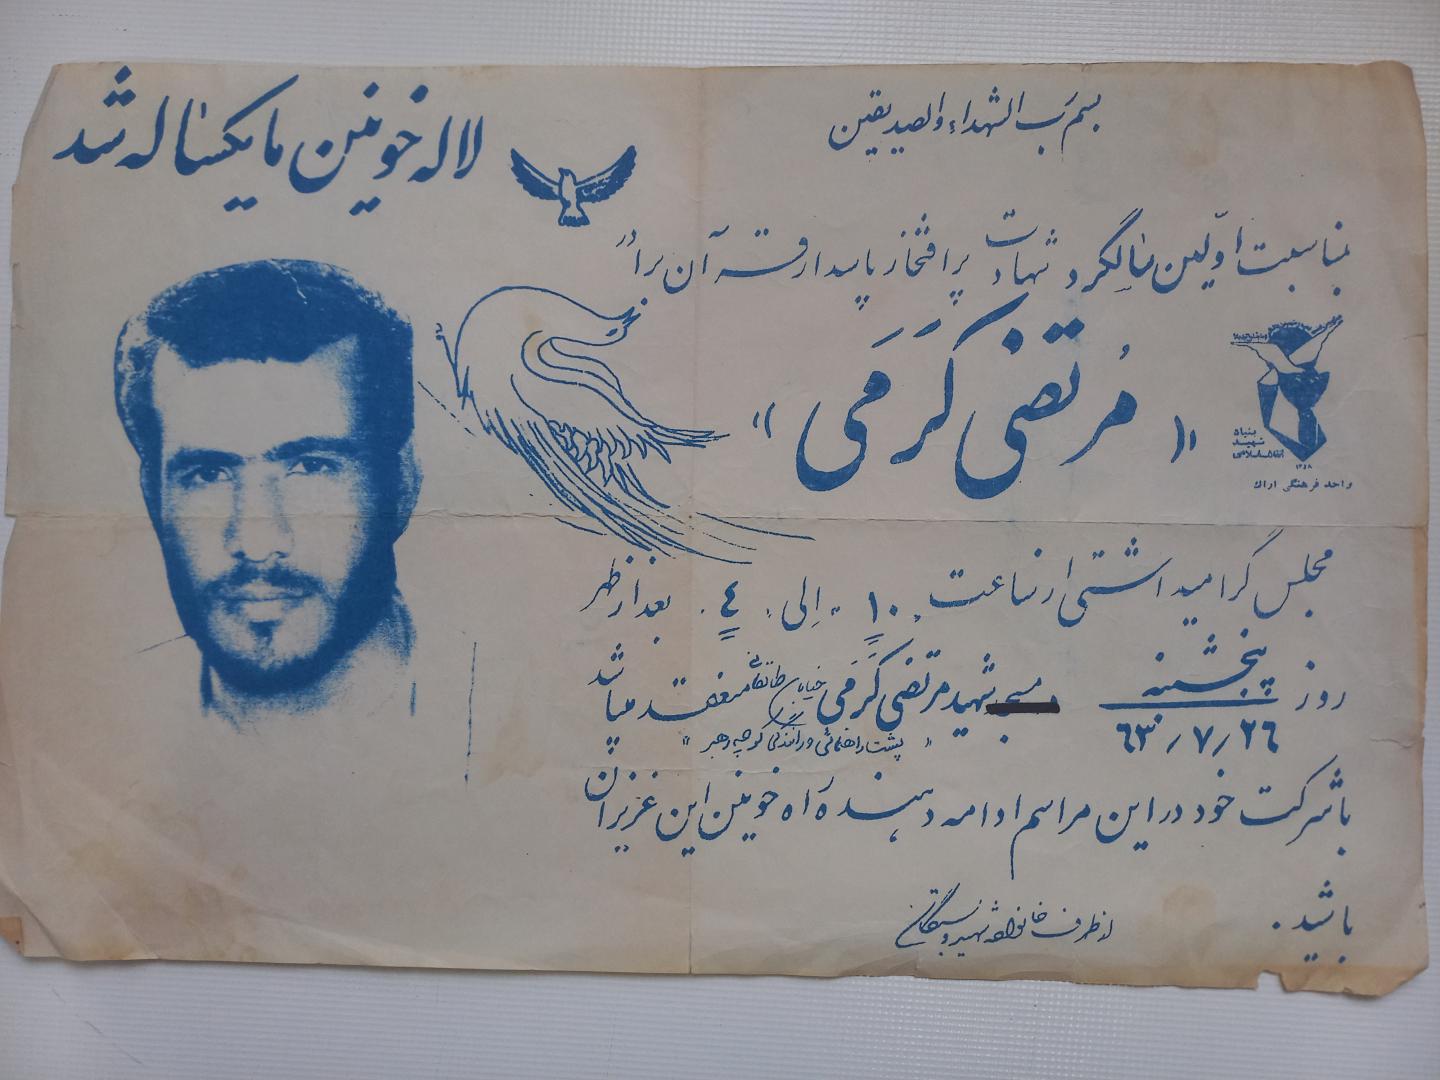 بسم رب الشهداء والصدیقین
لاله خونین ما یکساله شد
بمناسبت اوّلین سالگرد شهادت پر افتخار پاسدار قرآن برادر
« مُرتضی کَرَمی »
بنیاد
شهید
انقلاب اسلامی
۱۳۵۸
واحد فرهنگی اراک
مجلس گرامیداشتی از ساعت ۱۰ اِلی ٤ بعد از ظهر
روز پنجشنبه ۶۳/۷/۲۶ مسجد شهید مرتضی کَرَمی خیابان طالقانی منعقد میباشد
« پشت راهنمائی و رانندگی کوچه رهبر »
با شرکت خود در این مراسم ادامه دهنده راه خونین این عزیزان
باشید.
از طرف خانواده شهید و بستگان